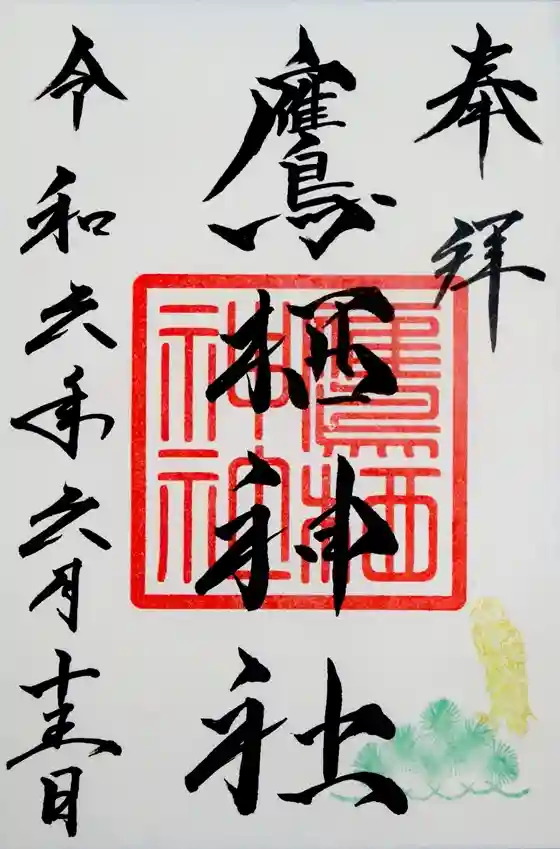 奉拝
鷹栖神社
鷹栖
神社
令和六年六月十五日